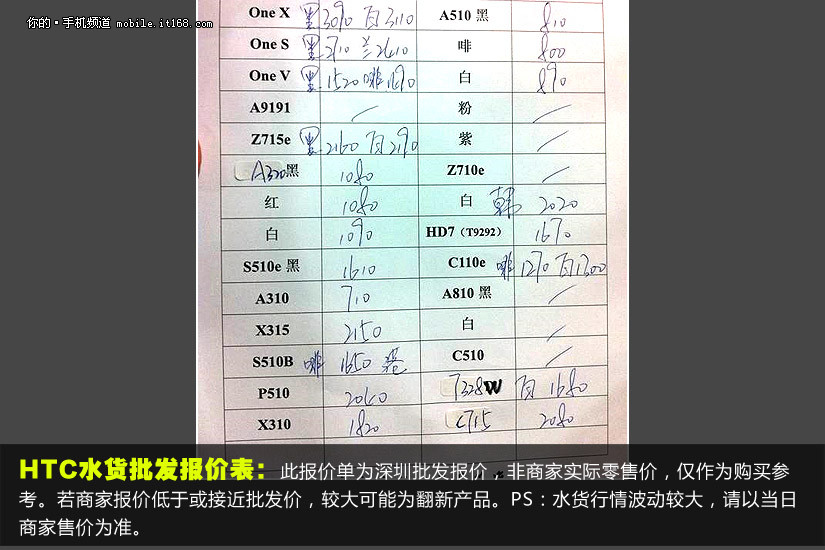 你的·手机频道 mobile.it168.com
One X 黑3090 白3110 A510 黑 810
One S 黑2710 兰2610 啡 800
One V 黑1520 啡1690 白 890
A9191 粉
Z715e 黑2160 白2190 紫
A320黑 1080 Z710e
红 1080 白 韩 2020
白 1090 HD7（T9292） 1670
S510e 黑 1610 C110e 啡1270 白1300
A310 710 A810 黑
X315 2150 白
S510B 啡 1650 港 C510
P510 2040 T328W 白 1680
X310 1820 C715 2080
HTC水货批发报价表：此报价单为深圳批发报价，非商家实际零售价，仅作为购买参
考。若商家报价低于或接近批发价，较大可能为翻新产品。PS：水货行情波动较大，请以当日
商家售价为准。